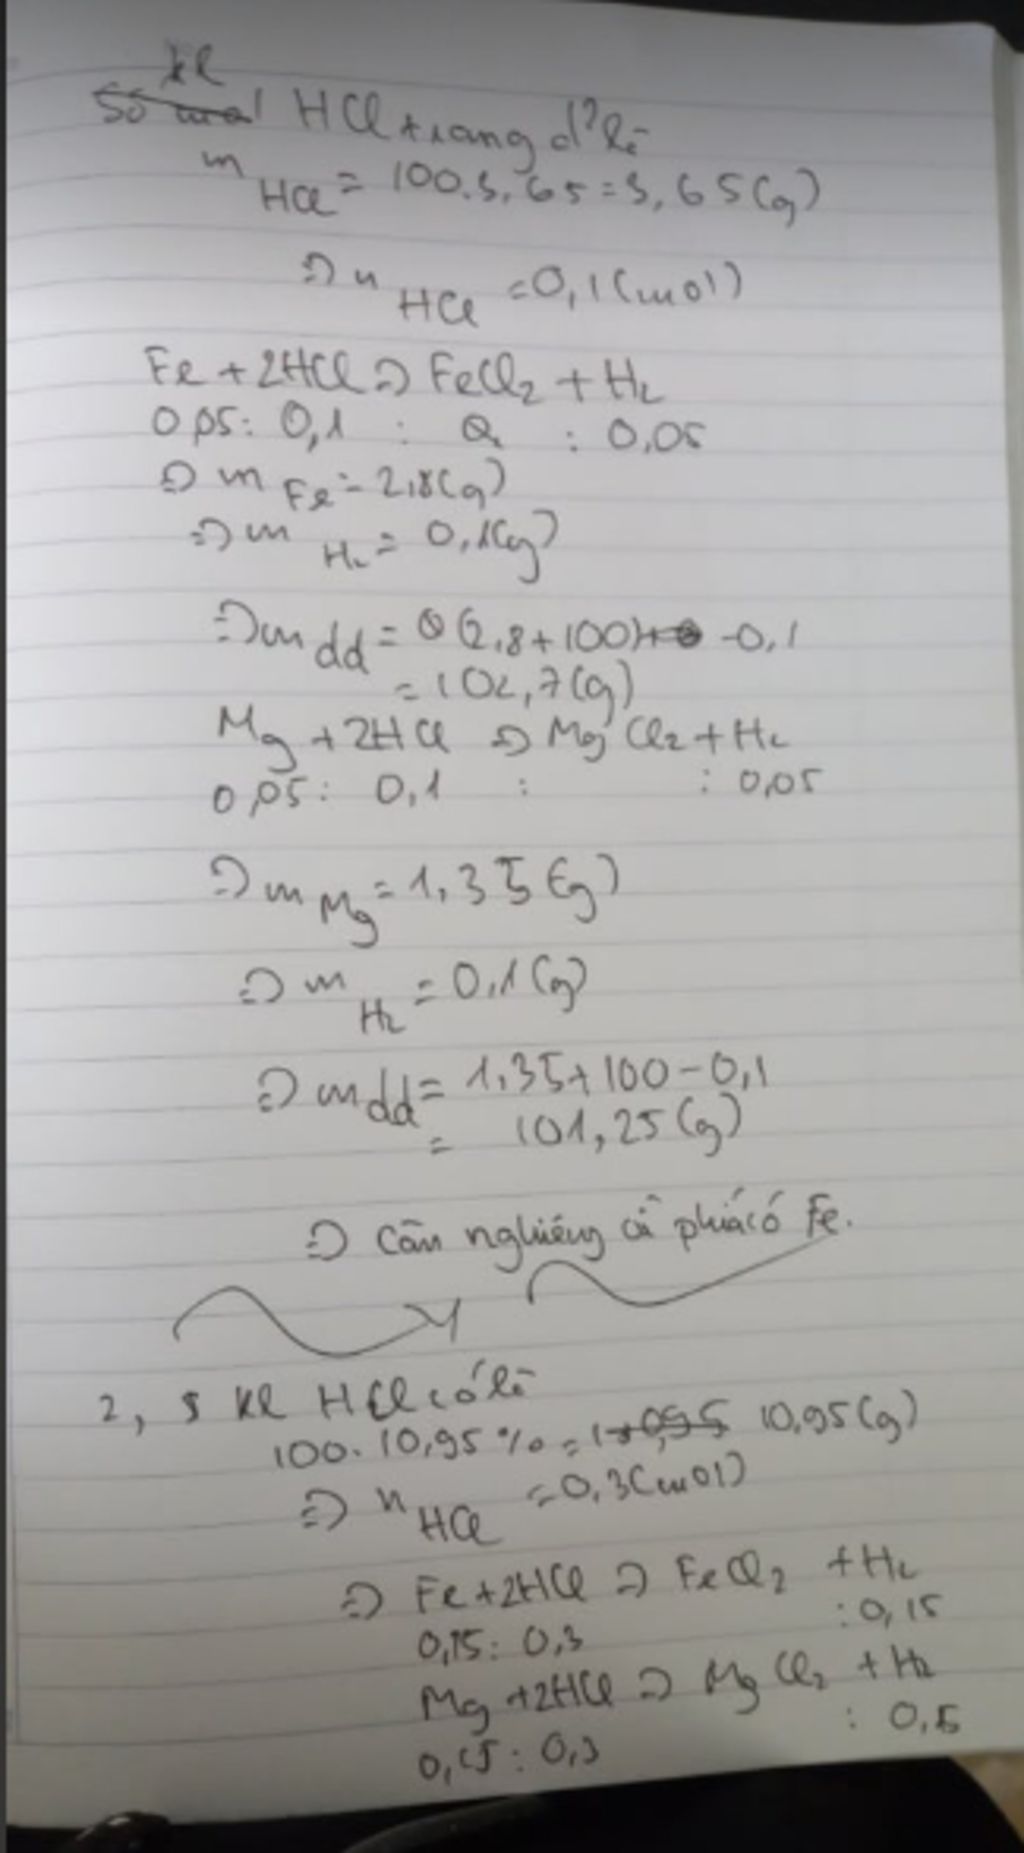 kl
Số mol HCl trong d² là
m HCl = 100.3,65 = 3,65(g)
=> n HCl = 0,1(mol)
Fe + 2HCl => FeCl2 + H2
0,05 : 0,1 : : 0,05
=> m Fe = 2,8(g)
=> m H2 = 0,1(g)
=> m dd = (2,8+100) -0,1
= 102,7(g)
Mg + 2HCl => MgCl2 + H2
0,05 : 0,1 : : 0,05
=> m Mg = 1,35(g)
=> m H2 = 0,1(g)
=> mdd = 1,35+100-0,1
= 101,25(g)
=> Cân nghiêng phía có Fe.
2, kl HCl có là
100. 10,95% = 10,95(g)
=> n HCl = 0,3(mol)
=> Fe+2HCl => FeCl2 + H2
0,15 : 0,3 : 0,15
Mg +2HCl => MgCl2 + H2
0,15 : 0,3 : 0,5